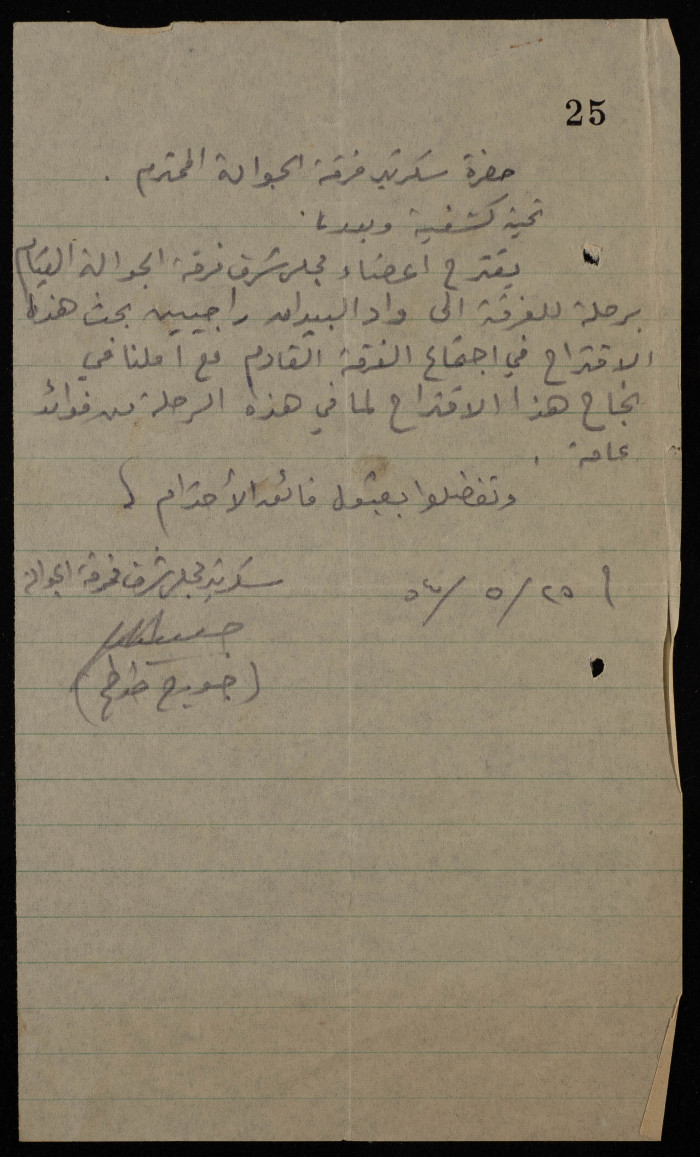 25
حضرة سكرتير فرقة الجوالة المحترم .
تحية كشفية وبعد،
يقترح اعضاء مجلس شرف فرقة الجوالة القيام
برحلة للفرقة الى واد البيدان راجيين بحث هذا
الاقتراح في اجتماع الفرقة القادم مع أملنا في
نجاح هذا الاقتراح لما في هذه الرحلة من فوائد
عامة .
وتفضلوا بقبول فائق الأحترام
٢٥ / ٥ /
سكرتير مجلس شرف فرقة الجوالة